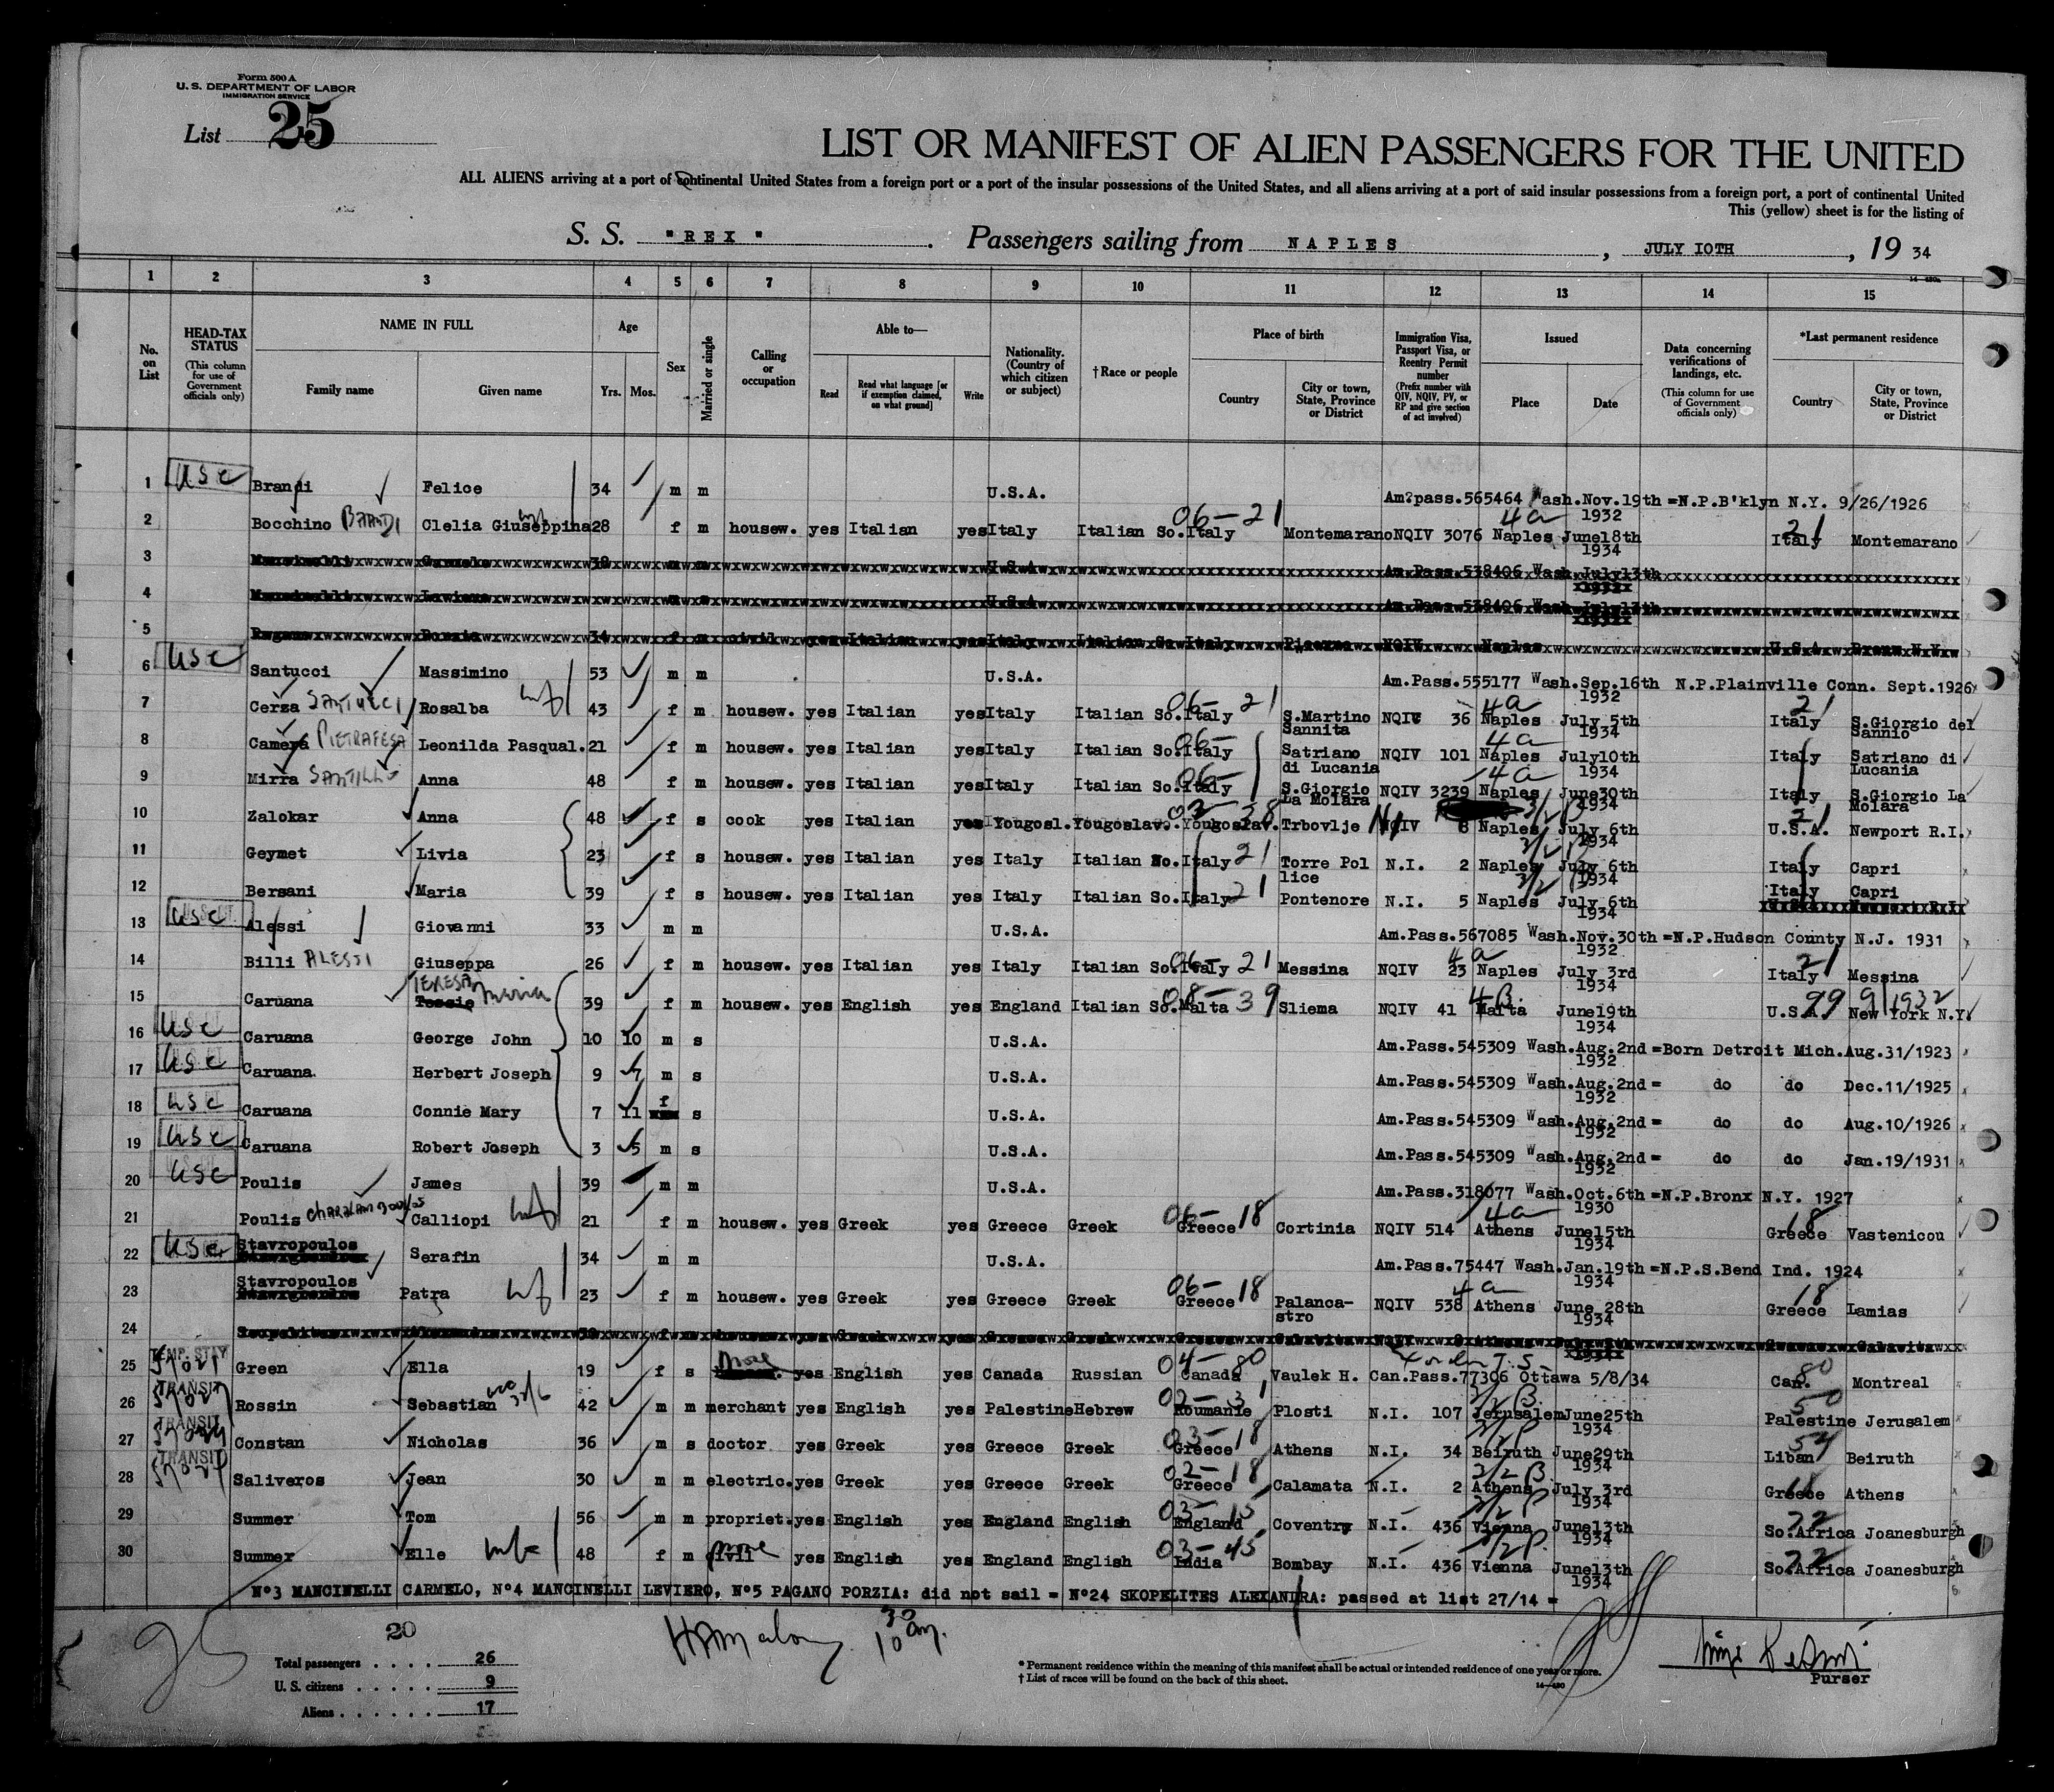 Form 500 A
U. S. DEPARTMENT OF LABOR
IMMIGRATION SERVICE
List 25
LIST OR MANIFEST OF ALIEN PASSENGERS FOR THE UNITED
ALL ALIENS arriving at a port of continental United States from a foreign port or a port of the insular possessions of the United States, and all aliens arriving at a port of said insular possessions from a foreign port, a port of continental United
This (yellow) sheet is for the listing of
S. S. "REX". Passengers sailing from NAPLES, JULY 10TH, 19 34
1 2 3 4 5 6 7 8 9 10 11 12 13 14 15
No. on List
HEAD-TAX STATUS (This column for use of Government officials only)
NAME IN FULL Family name Given name
Age Yrs. Mos.
Sex
Married or single
Calling or occupation
Able to— Read Read what language [or if exemption claimed, on what ground] Write
Nationality. (Country of which citizen or subject)
†Race or people
Place of birth Country City or town, State, Province or District
Immigration Visa, Passport Visa, or Reentry Permit number (Prefix number with QIV, NQIV, PV, or RP and give section of act involved)
Issued Place Date
Data concerning verifications of landings, etc. (This column for use of Government officials only)
*Last permanent residence Country City or town, State, Province or District
1 USC Brandi Felice 34 m m U.S.A. Am?pass.565464 Wash.Nov.19th 1932 =N.P.B'klyn N.Y. 9/26/1926
2 Bocchino BRANDI Clelia Giuseppina 28 f m housew. yes Italian yes Italy Italian So. Italy 06-21 Montemarano NQIV 3076 4a Naples June18th 1934 Italy 21 Montemarano
3 U.S.A. Am.Pass.538406 Wash.July13th 1932
4 U.S.A. Am.Pass.538406 Wash.July13th 1932
5 34 f m civil yes Italian yes Italy Italian So. Italy NQIV Naples U.S.A. Bronx N.Y.
6 USC Santucci Massimino 53 m m U.S.A. Am.Pass.555177 Wash.Sep.16th 1932 N.P.Plainville Conn. Sept.1926
7 Cerza SANTUCCI Rosalba wf 43 f m housew. yes Italian yes Italy Italian So. Italy 06-21 S.Martino Sannita NQIV 36 4a Naples July 5th 1934 Italy 21 S.Giorgio del Sannio
8 Camera PIETRAFESA Leonilda Pasqual. 21 f m housew. yes Italian yes Italy Italian So. Italy 06- Satriano di Lucania NQIV 101 4a Naples July10th 1934 Italy Satriano di Lucania
9 Mirra SANTILLO Anna 48 f m housew. yes Italian yes Italy Italian So. Italy 06- S.Giorgio La Molara NQIV 3239 4a Naples June30th 1934 Italy S.Giorgio La Molara
10 Zalokar Anna 48 f s cook yes Italian yes Yougosl. Yougoslav. Yougoslav. Trbovlje NI 8 3/2 B Naples July 6th 1934 U.S.A. 21 Newport R.I.
11 Geymet Livia 23 f s housew. yes Italian yes Italy Italian No. Italy 21 Torre Pol lice N.I. 2 3/2 B Naples July 6th 1934 Italy Capri
12 Bersani Maria 39 f s housew. yes Italian yes Italy Italian So. Italy 21 Pontenore N.I. 5 3/2 B Naples July 6th 1934 Italy Capri
13 USC Alessi Giovanni 33 m m U.S.A. Am.Pass.567085 Wash.Nov.30th 1932 =N.P.Hudson County N.J. 1931
14 Billi ALESSI Giuseppa 26 f m housew. yes Italian yes Italy Italian So. Italy 06-21 Messina NQIV 23 4a Naples July 3rd 1934 Italy 21 Messina
15 Caruana Tessie TERESA Maria 39 f m housew. yes English yes England Italian So. Malta 08-39 Sliema NQIV 41 4B. Malta June19th 1934 U.S.A. 99 9/1932 New York N.Y.
16 USC Caruana George John 10 10 m s U.S.A. Am.Pass.545309 Wash.Aug.2nd 1932 =Born Detroit Mich.Aug.31/1923
17 USC Caruana Herbert Joseph 9 7 m s U.S.A. Am.Pass.545309 Wash.Aug.2nd 1932 = do do Dec.11/1925
18 USC Caruana Connie Mary 7 11 f s U.S.A. Am.Pass.545309 Wash.Aug.2nd 1932 = do do Aug.10/1926
19 USC Caruana Robert Joseph 3 5 m s U.S.A. Am.Pass.545309 Wash.Aug.2nd 1932 = do do Jan.19/1931
20 USC Poulis James 39 m m U.S.A. Am.Pass.318077 Wash.Oct.6th 1930 =N.P.Bronx N.Y. 1927
21 Poulis Calliopi wf 21 f m housew. yes Greek yes Greece Greek Greece 06-18 Cortinia NQIV 514 4a Athens June15th 1934 Greece 18 Vastenicou
22 USC Stavropoulos Serafin 34 m m U.S.A. Am.Pass.75447 Wash.Jan.19th 1934 =N.P.S.Bend Ind. 1924
23 Stavropoulos Patra wf 23 f m housew. yes Greek yes Greece Greek Greece 06-18 Palanca-stro NQIV 538 4a Athens June 28th 1934 Greece 18 Lamias
24
25 TEMP. STAY Green Ella 19 f s none yes English yes Canada Russian Canada 04-80 Vaulek H. Can.Pass.77306 Ottawa 5/8/34 Can. 80 Montreal
26 TRANSIT Rossin Sebastian 42 m m merchant yes English yes Palestine Hebrew Roumanie 02-31 Plosti N.I. 107 3/2 B. Jerusalem June25th 1934 Palestine 50 Jerusalem
27 TRANSIT Constan Nicholas 36 m s doctor yes Greek yes Greece Greek Greece 03-18 Athens N.I. 34 Beiruth June29th 1934 Liban 54 Beiruth
28 TRANSIT Saliveros Jean 30 m m electric. yes Greek yes Greece Greek Greece 02-18 Calamata N.I. 2 3/2 B. Athens July 3rd 1934 Greece 18 Athens
29 Summer Tom 56 m m propriet. yes English yes England English England 03-15 Coventry N.I. 436 Vienna June13th 1934 So.Africa 72 Joanesburgh
30 Summer Elle wife 48 f m civil none yes English yes England English India 03-45 Bombay N.I. 436 Vienna June13th 1934 So.Africa 72 Joanesburgh
Nº3 MANCINELLI CARMELO, Nº4 MANCINELLI LEVIERO, Nº5 PAGANO PORZIA: did not sail = Nº24 SKOPELITES ALEXANDRA: passed at list 27/14 =
25
20
Total passengers . . . . 26
U. S. citizens . . . . . 9
Aliens . . . . . . 17
* Permanent residence within the meaning of this manifest shall be actual or intended residence of one year or more.
† List of races will be found on the back of this sheet.
14—480
Purser